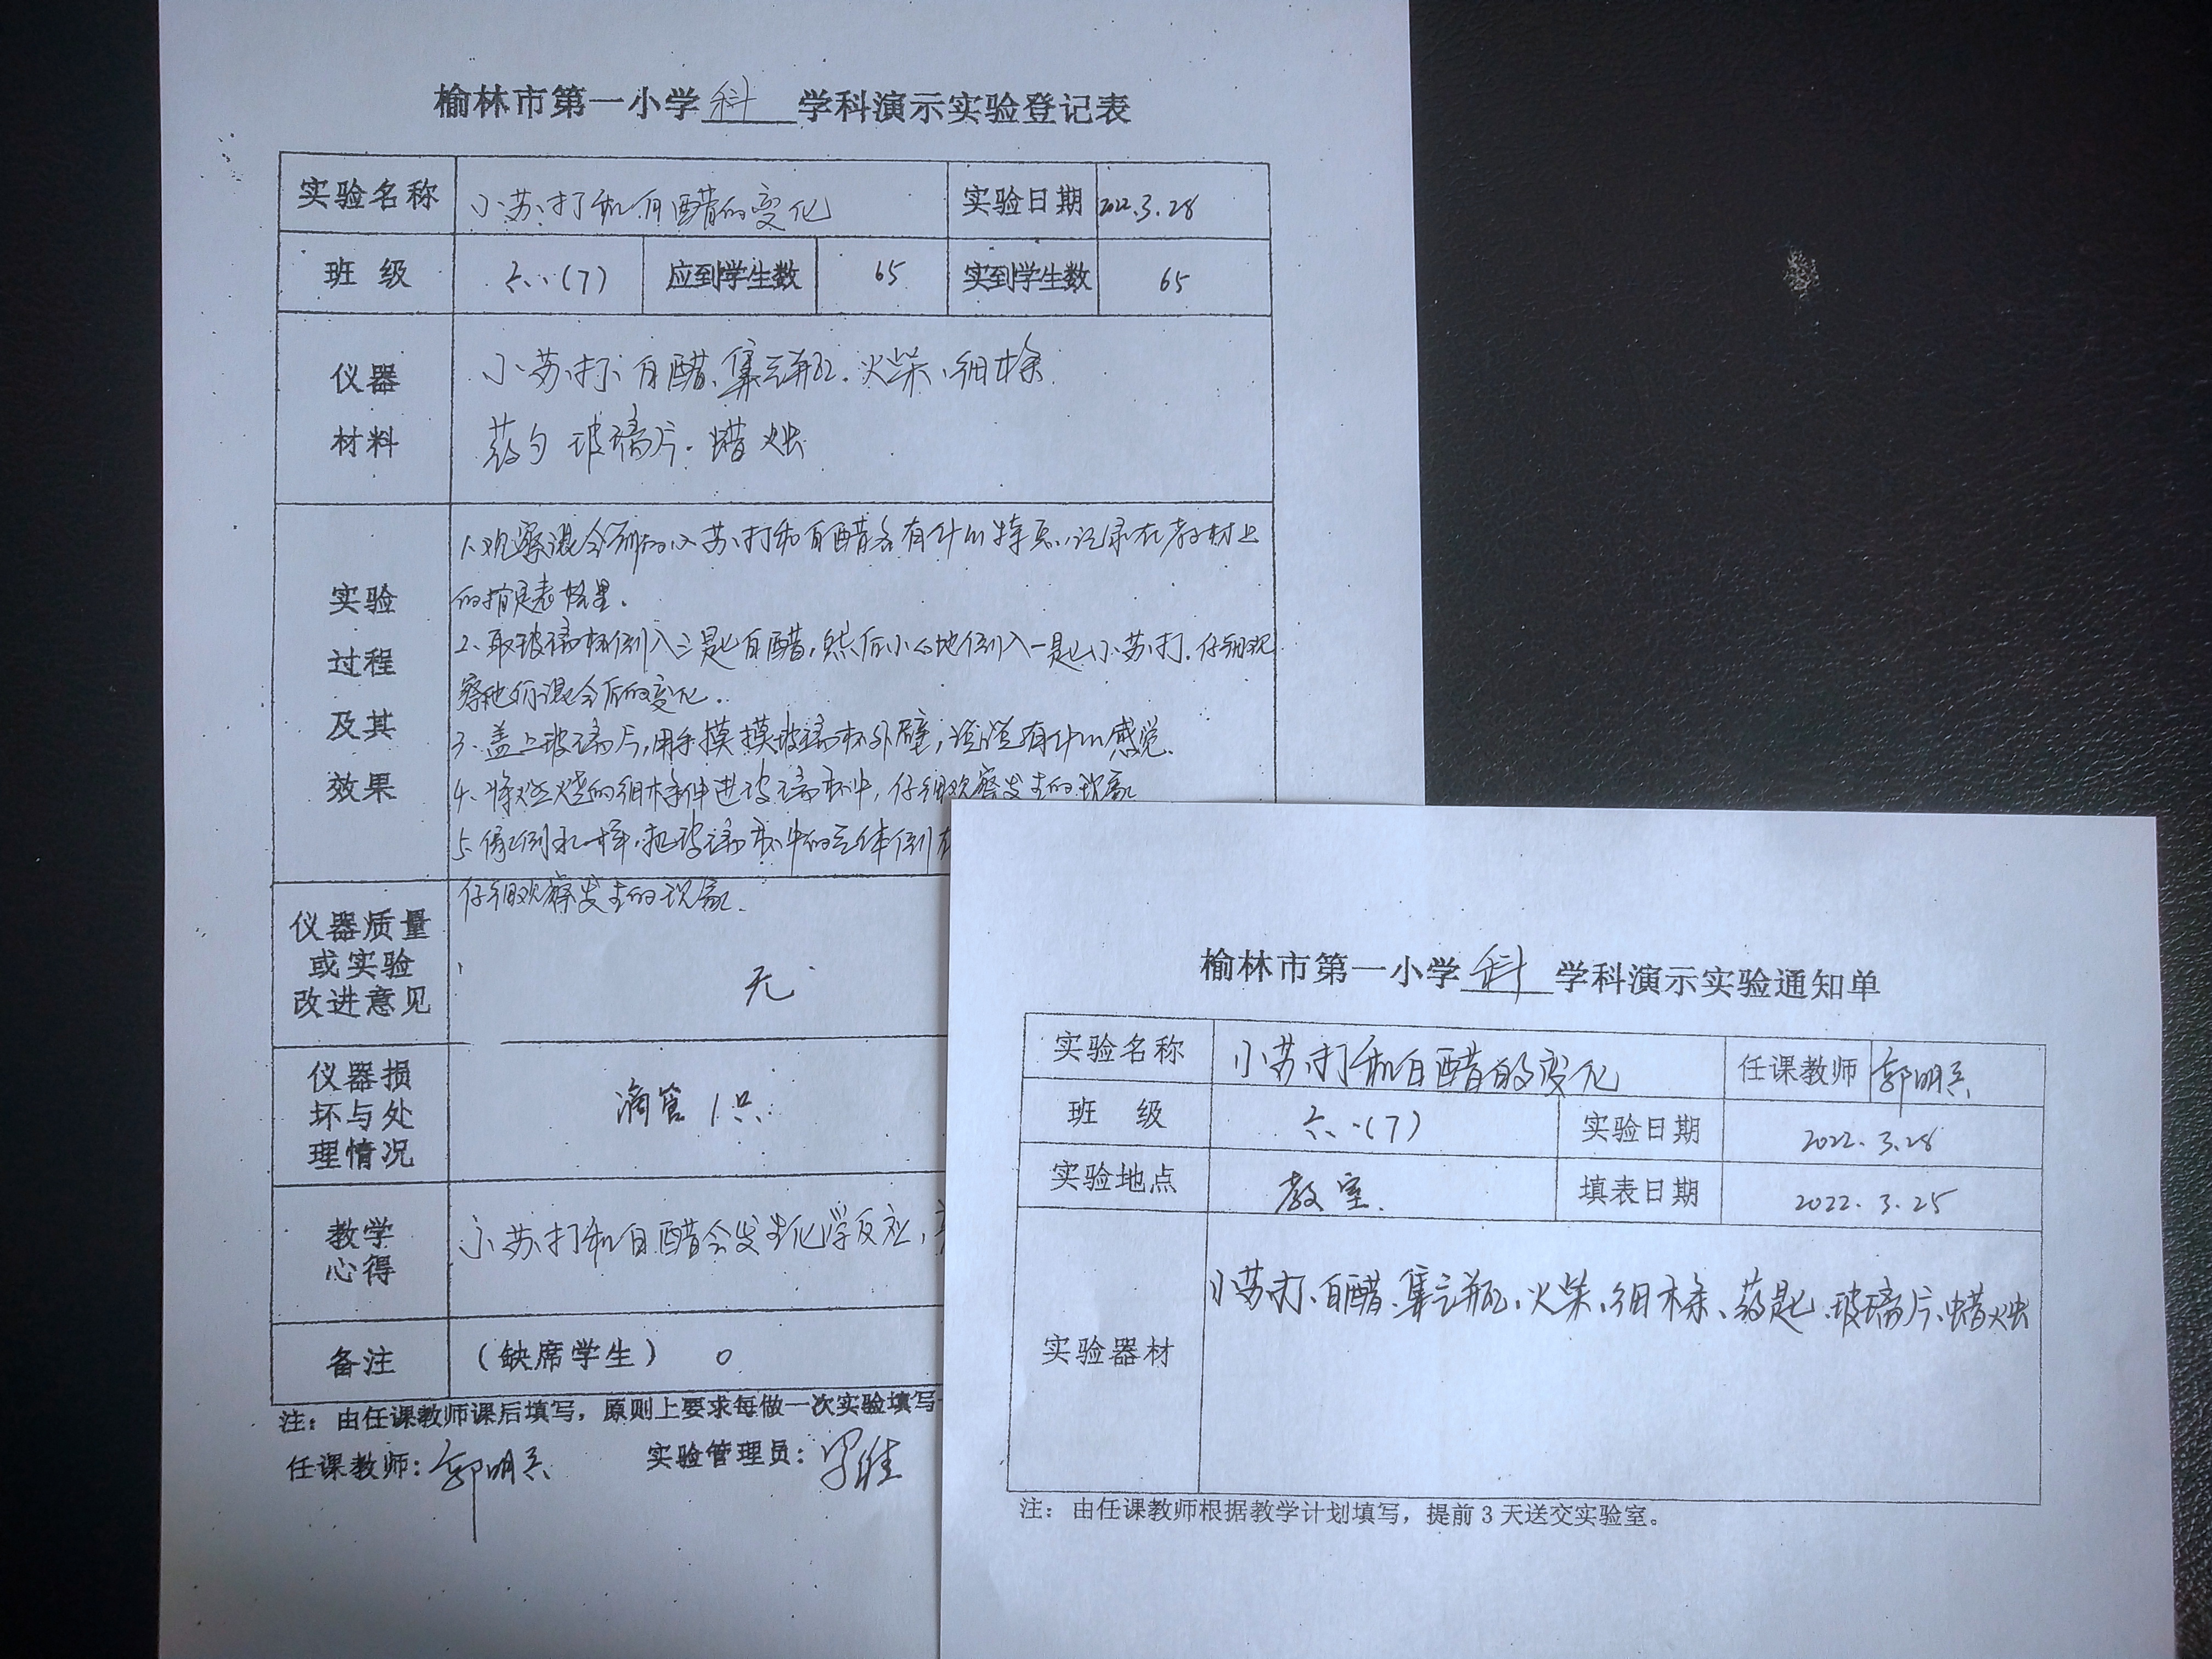 榆林市第一小学 科 学科演示实验登记表
实验名称 小苏打和白醋的变化 实验日期 2022.3.28
班 级 六(7) 应到学生数 65 实到学生数 65
仪器
材料
小苏打、白醋、集气瓶、火柴、细木条
药勺 玻璃片、蜡烛
实验
过程
及其
效果
1、观察混合前的小苏打和白醋各有什么特点,记录在教材上
的指定表格里.
2、取玻璃杯倒入三匙白醋,然后小心地倒入一匙小苏打.仔细观
察他们混合后的变化.
3、盖上玻璃片,用手摸摸玻璃杯外壁,说说有什么感觉.
4、将燃烧的细木条伸进玻璃杯中,仔细观察发生的现象
5、像倒水一样,把玻璃杯中的气体倒在
仔细观察发生的现象.
仪器质量
或实验
改进意见
无
仪器损
坏与处
理情况
滴管1只
教学
心得
小苏打和白醋会发生化学反应,
备注 (缺席学生) 0
注: 由任课教师课后填写,原则上要求每做一次实验填写
任课教师: 郭明 实验管理员:
榆林市第一小学 科 学科演示实验通知单
实验名称 小苏打和白醋的变化 任课教师 郭明
班 级 六(7) 实验日期 2022.3.28
实验地点 教室. 填表日期 2022.3.25
实验器材 小苏打、白醋、集气瓶、火柴、细木条、药匙、玻璃片、蜡烛
注: 由任课教师根据教学计划填写,提前3天送交实验室。